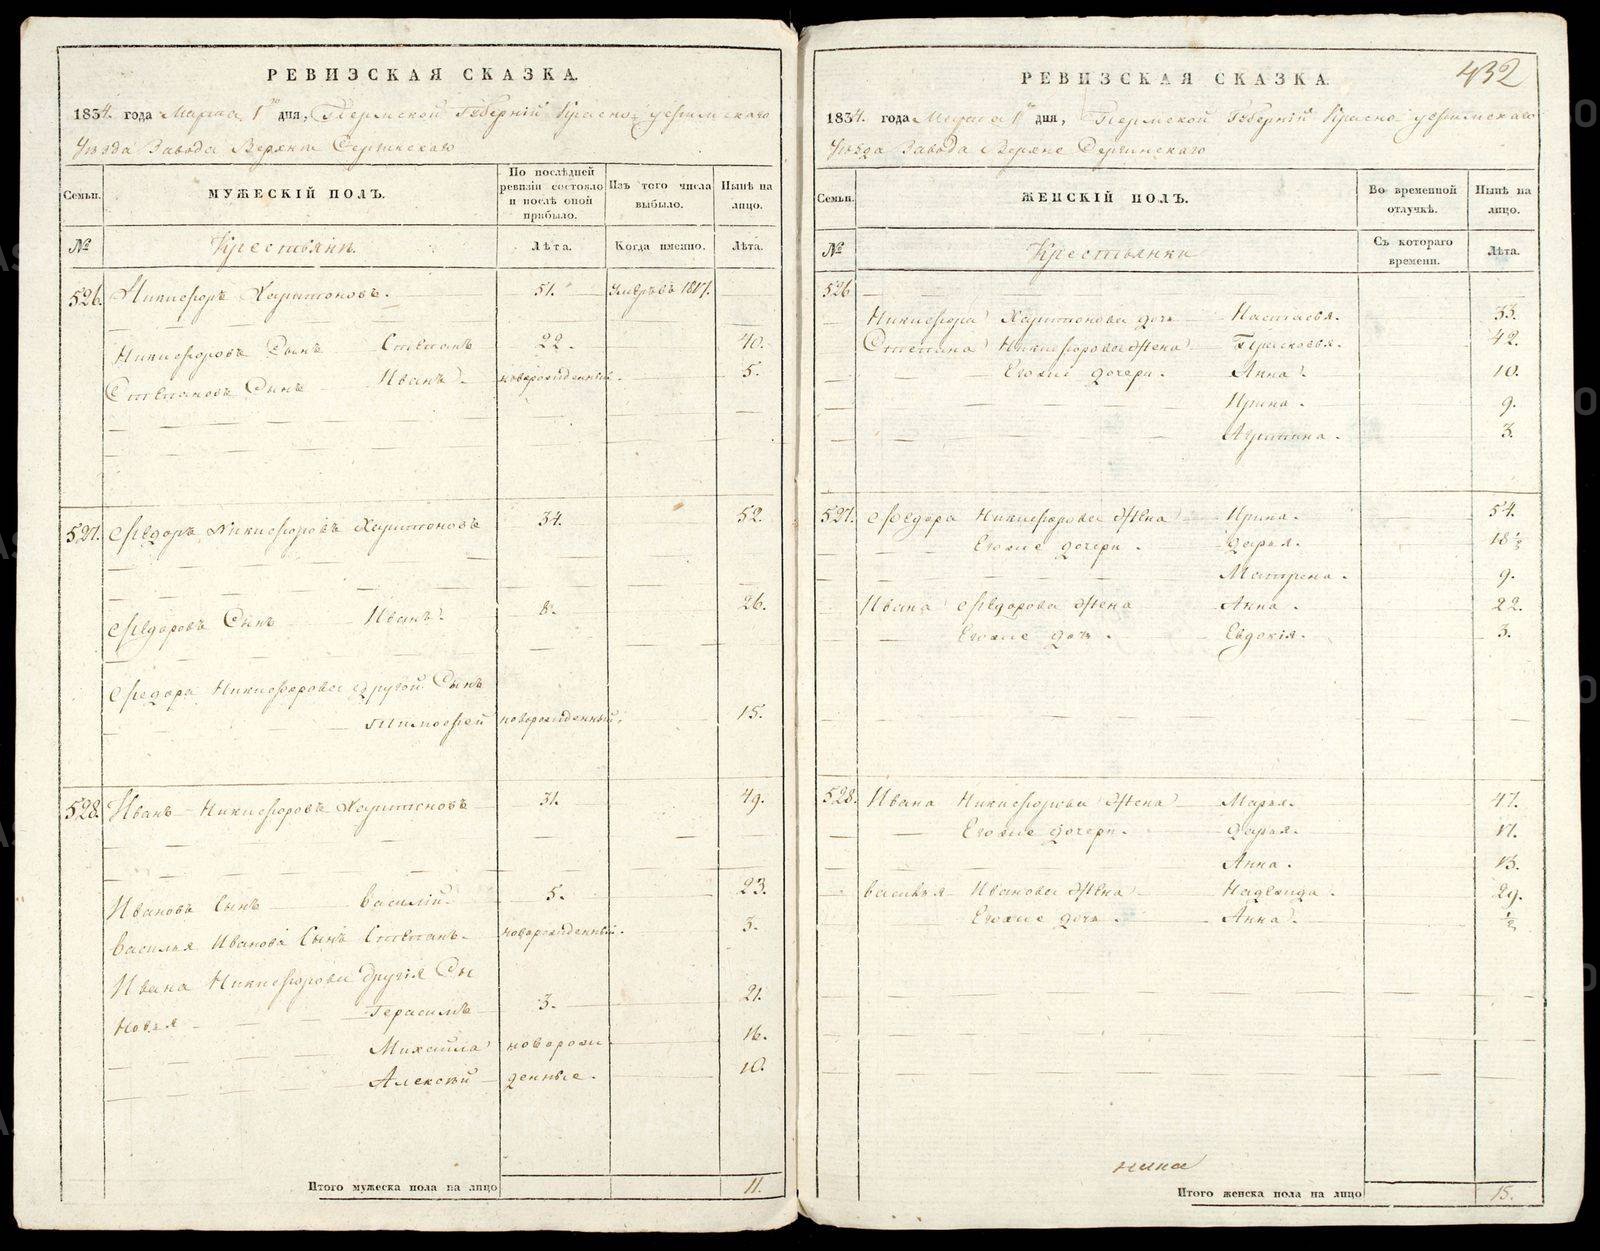 РЕВИЗСКАЯ СКАЗКА.
1834. года Марта 1го дня, Пермской Губернiй Красно уфимскаго
Уѣзда Завода Верхне Сергинскаго
Семьи.
МУЖЕСКIЙ ПОЛЪ.
По послѣдней ревизiи состояло и послѣ оной прибыло.
Изъ того числа выбыло.
Нынѣ на лицо.
№
Крестьяне.
Лѣта.
Когда именно.
Лѣта.
526. Никифоръ Харитоновъ. 51. умеръ въ 1817.
Никифоровъ Сынъ Степанъ 22. 40.
Степановъ Сынъ Иванъ. новорожденный. 5.
527. Федоръ Никифоровъ Харитоновъ 34. 52.
Федоровъ Сынъ Иванъ. 8. 26.
Федора Никифорова другой Сынъ
Тимофей новорожденный. 15.
528. Иванъ Никифоровъ Харитоновъ 31. 49.
Ивановъ Сынъ Василiй. 5. 23.
Василья Иванова Сынъ Степанъ. новорожденный. 3.
Ивана Никифорова другiя Сы
новья Герасимъ 3. 21.
Михайла новорож 16.
Алексѣй денные. 10.
Итого мужеска пола на лицо 11.
432
РЕВИЗСКАЯ СКАЗКА.
1834. года Марта 1го дня, Пермской Губернiй Красно уфимскаго
Уѣзда Завода Верхне Сергинскаго
Семьи.
ЖЕНСКIЙ ПОЛЪ.
Во временной отлучкѣ.
Нынѣ на лицо.
№
Крестьянки
Съ котораго времени.
Лѣта.
526
Никифора Харитонова дочь Настасья. 33.
Степана Никифорова Жена Прасковья. 42.
Егоже дочери. Анна. 10.
Ирина. 9.
Агупина. 3.
527. Федора Никифорова Жена Ирина. 54.
Егоже дочери. Дарья. 18 1/2
Матрена. 9.
Ивана Федорова Жена Анна. 22.
Егоже дочь. Евдокiя. 3.
528. Ивана Никифорова Жена Марья. 47.
Егоже дочери. Дарья. 17.
Анна. 13.
Василья Иванова Жена Надежида. 29.
Егоже дочь. Анна. 1/2
Итого женска пола на лицо 15.